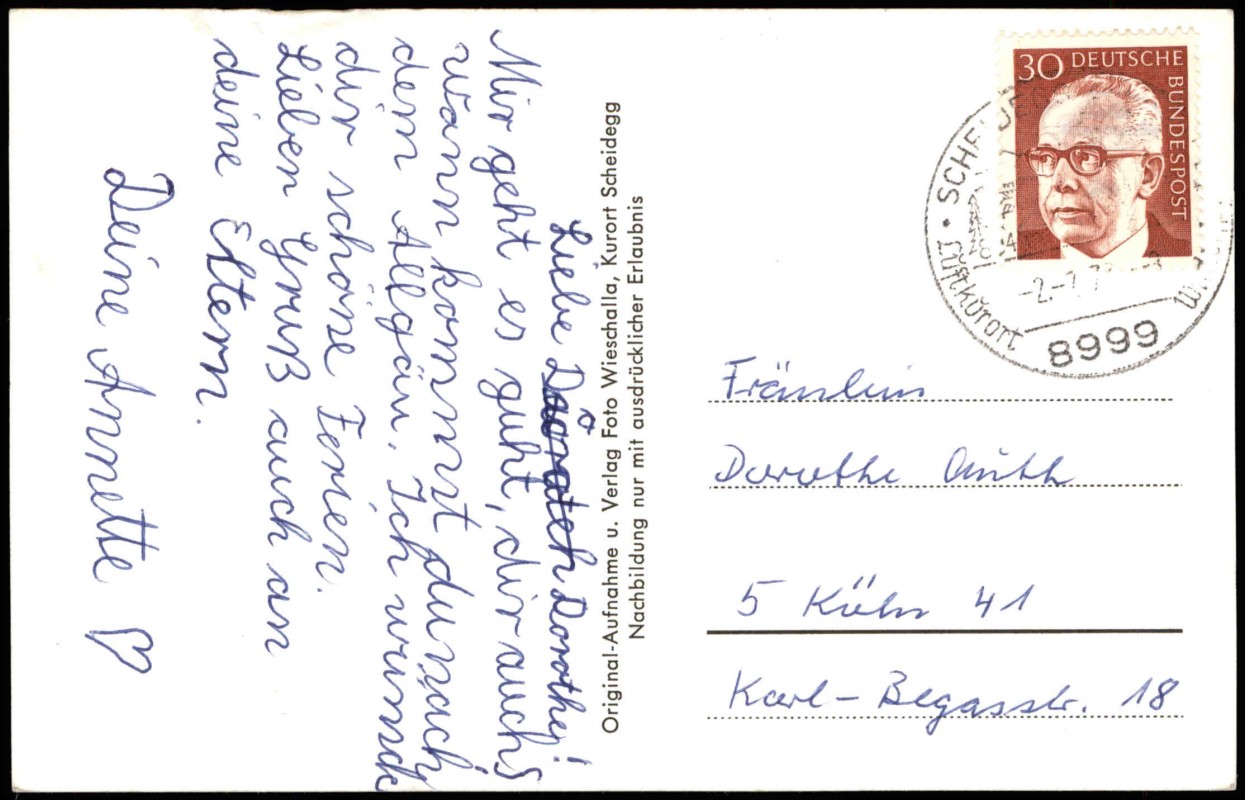 Liebe Dorothe!
Mir geht es guht, dir auch?
wann kommst du nach
dem Allgäu. Ich wünsch
dir schöne Ferien.
Lieben Gruß auch an
deine Eltern.
Deine Annette
Original-Aufnahme u. Verlag Foto Wieschalla, Kurort Scheidegg
Nachbildung nur mit ausdrücklicher Erlaubnis
30 DEUTSCHE
BUNDESPOST
Luftkurort
8999
Fräulein
Dorothe
5 Köln 41
Karl-Begasstr. 18